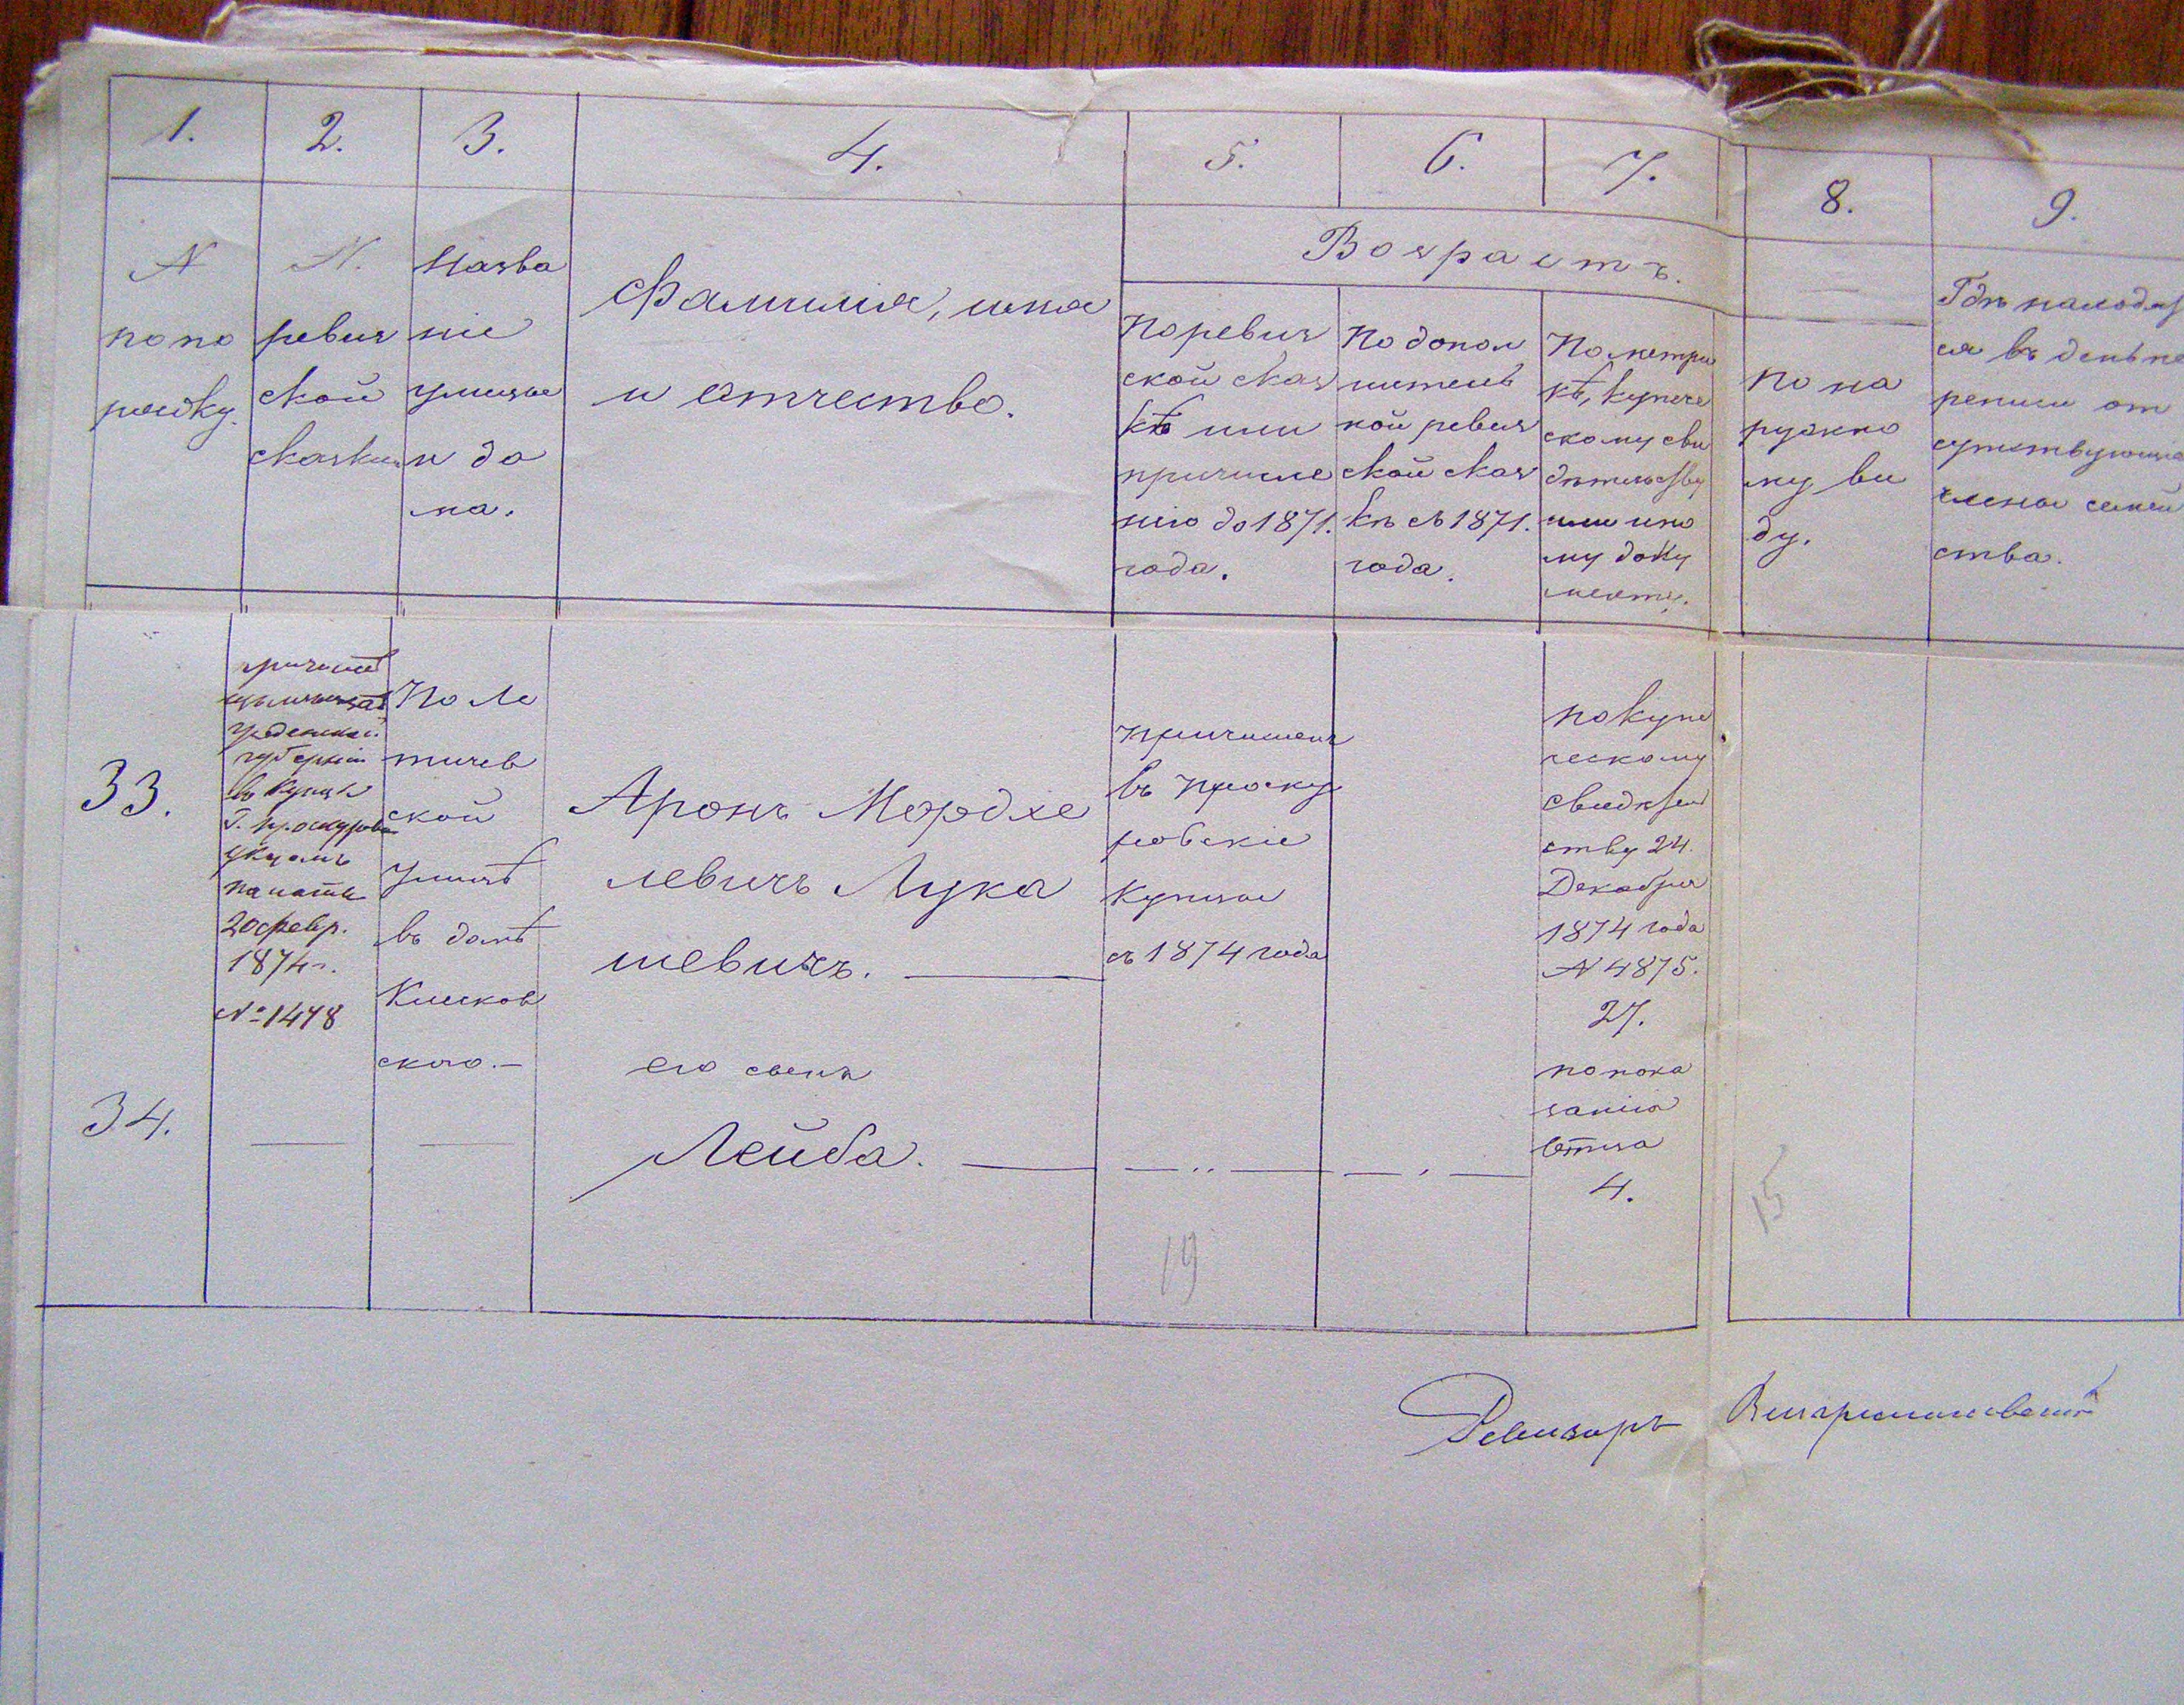 1.
2.
3.
4.
5.
6.
7.
8.
9.
№
по по
рядку.
№.
ревиз
ской
сказки
Назва
ніе
улицы
и до
ма.
Фамилія, имя
и отчество.
Возрастъ.
По ревиз
ской сказ
кѣ или
причисле
нію до 1871.
года.
По допол
нитель
ной ревиз
ской сказ
кѣ съ 1871.
года.
По метри
кѣ, купече
скому сви
дѣтельству
или ино
му доку
менту.
По на
ружно
му ви
ду.
Гдѣ находят
ся въ день пе
реписи от
сутствующіе
члены семей
ства.
33.
причисл
губерніи
въ купцы
г. Проскурова
указомъ
палаты
20 февр.
1874 г.
№ 1478
По Ле
тичев
ской
улицѣ
въ домѣ
Клисков
ского.—
Аронъ Мордхе
левичъ Лука
шевичъ.
причисленъ
въ Проску
ровскіе
купцы
съ 1874 года
по купе
ческому
свидѣтель
ству 24.
Декабря
1874 года
№ 4875.
27.
34.
его сынъ
Лейба.
по пока
занію
отца
4.
19
15
Ревизоръ